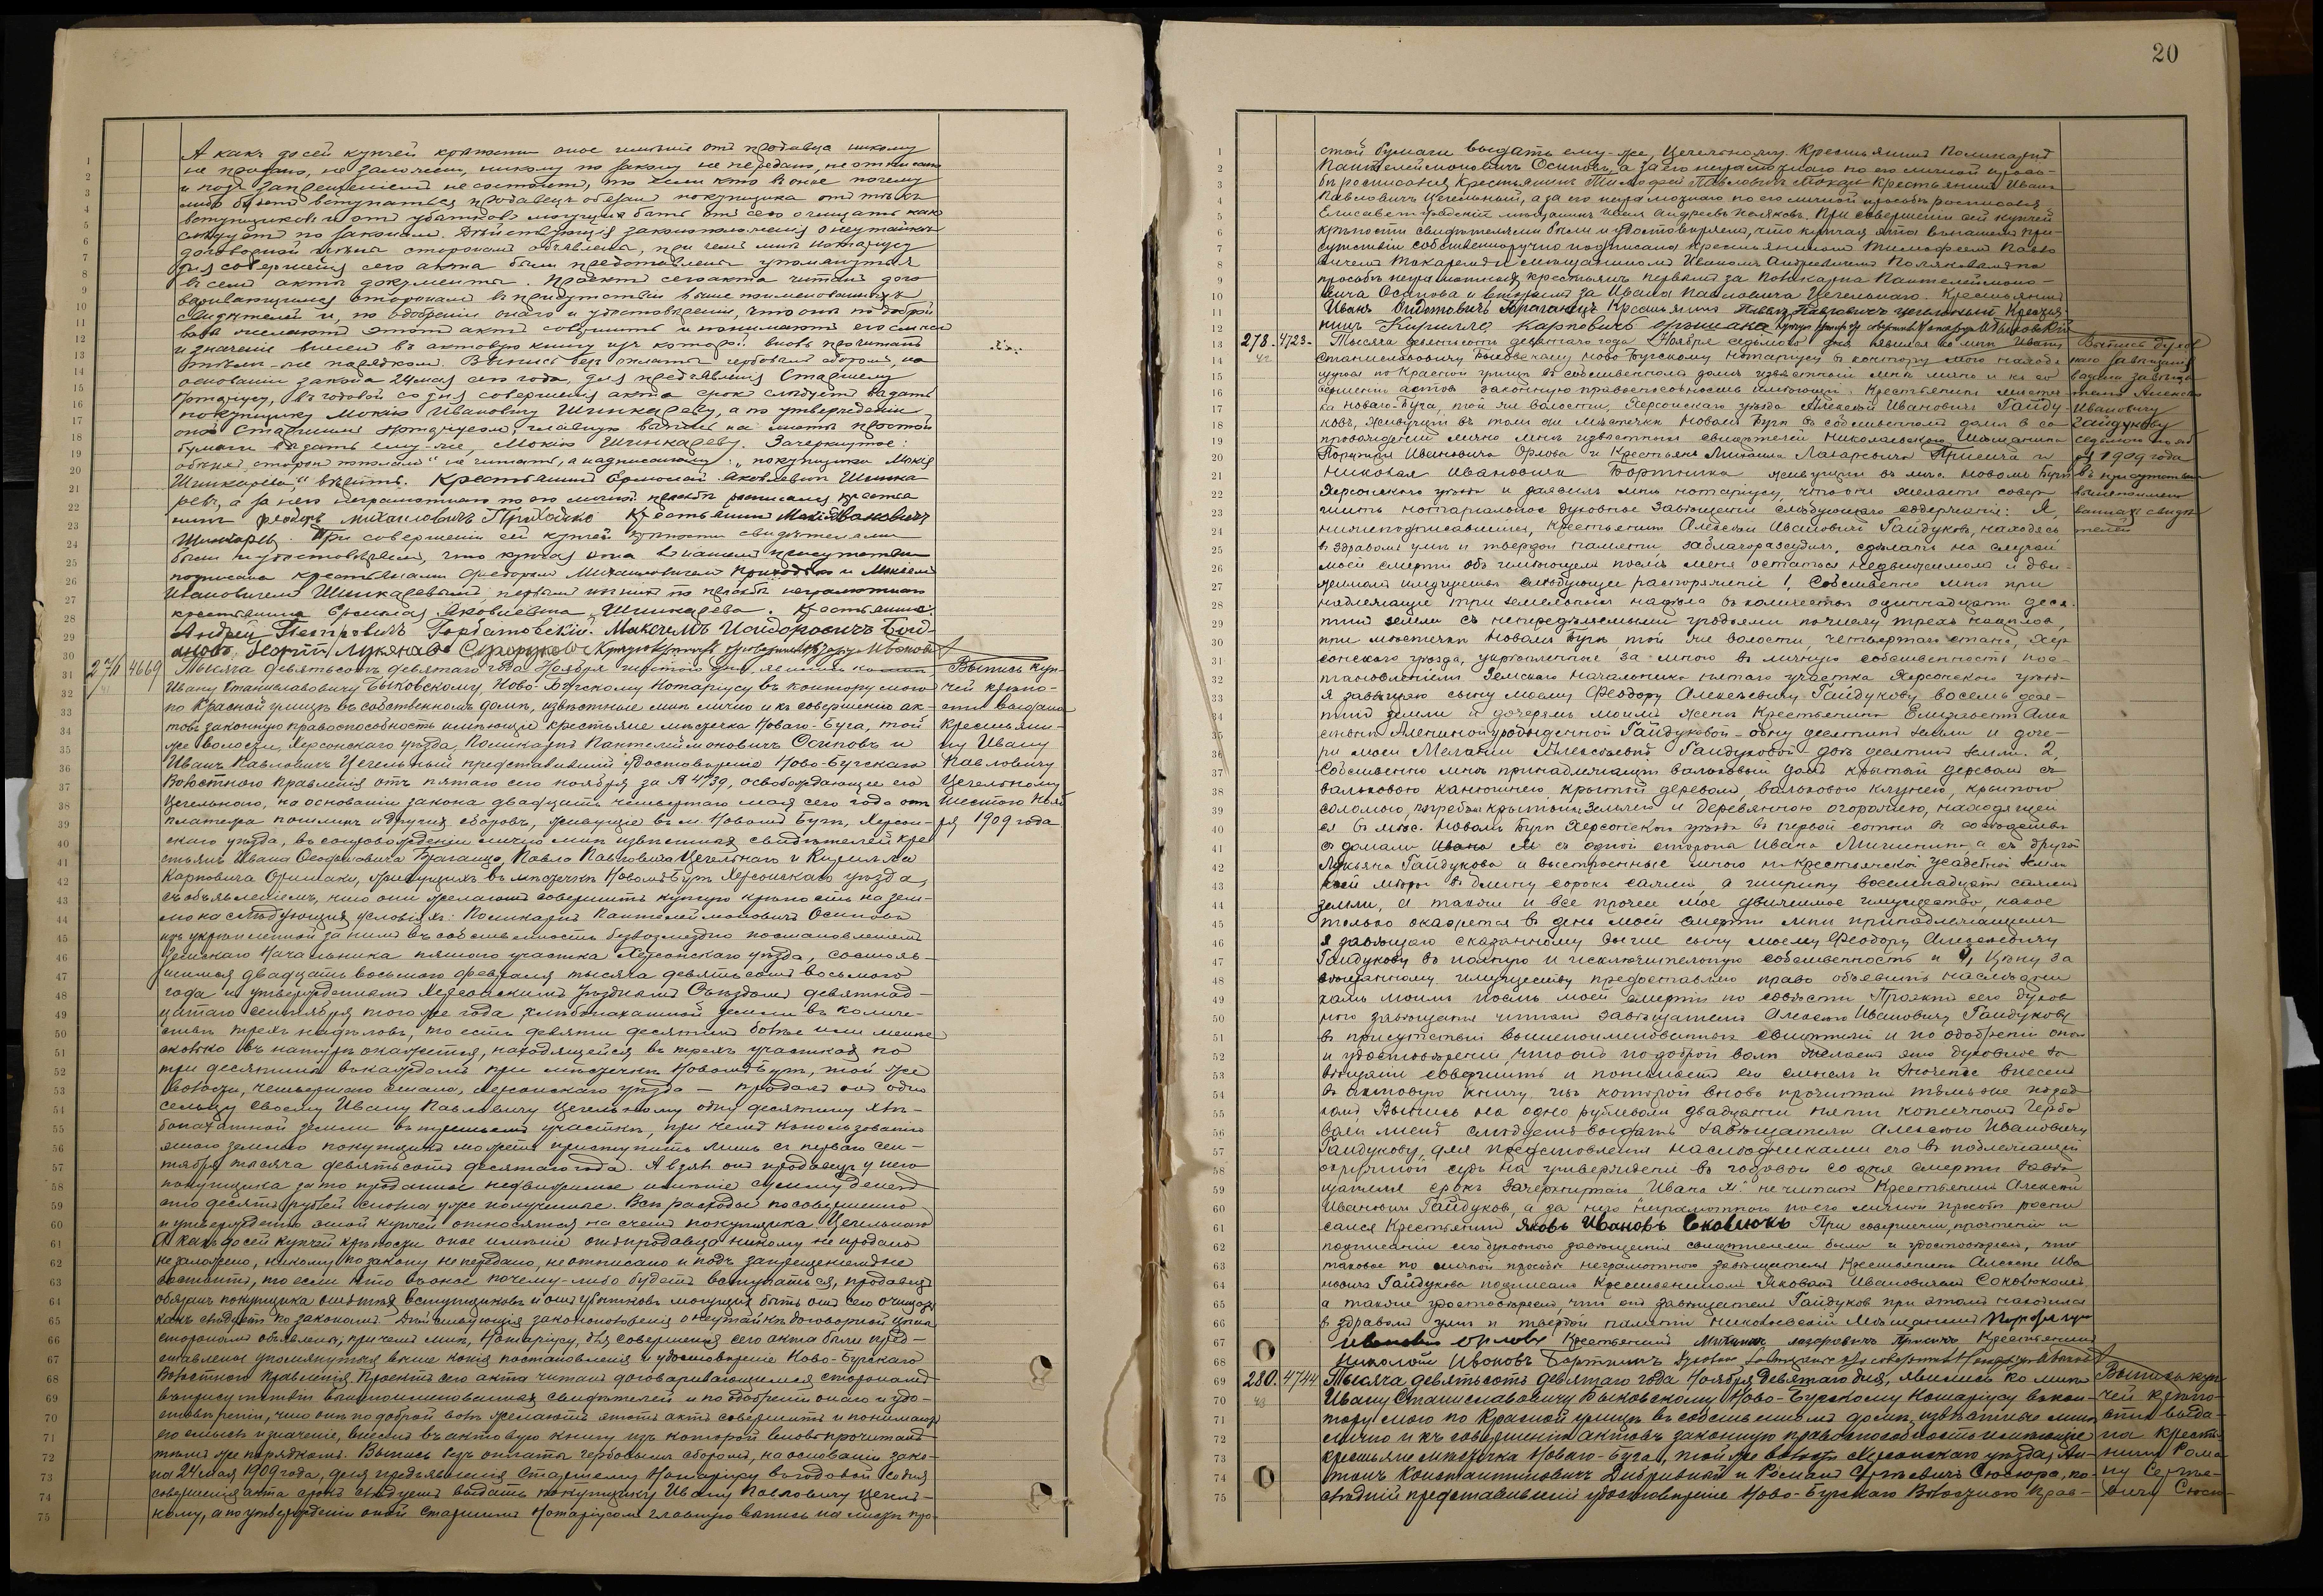 20
А какъ до сей купчей крѣпости оное имѣніе отъ продавца никому
не продано, не заложено, никому по закону не передано, не отписано
и подъ запрещеніемъ не состоитъ, то если кто въ оное почему
либо будетъ вступаться продавецъ обязанъ покупщика отъ тѣхъ
вступщиковъ и отъ убытковъ могущихъ быть отъ сего очищать какъ
слѣдуетъ по законамъ. Дѣйствующія законоположенія о неутайкѣ
договорной цѣны сторонамъ объявлены, при чемъ мнѣ Нотаріусу
для совершенія сего акта были представлены упомянутыя
въ семъ актѣ документы. Проектъ сего акта читанъ дого
варивающимся сторонамъ въ присутствіи выше поименованныхъ
свидѣтелей и, по одобреніи онаго и удостовѣреніи, что они по доброй
волѣ желаютъ этотъ актъ совершить и понимаютъ его смыслъ
и значеніе внесенъ въ актовую книгу изъ которой вновь прочитанъ
тѣмъ-же порядкомъ. Выпись безъ оплаты гербовымъ сборомъ, на
основаніи закона 24 мая сего года, для предъявленія Старшему
Нотаріусу, въ годовой со дня совершенія акта срокъ слѣдуетъ выдать
покупщику Мокію Ивановичу Шинкареву, а по утвержденіи
оной Старшимъ Нотаріусомъ, главную выпись на листѣ простой
бумаги выдать ему-же, Мокію Шинкареву. Зачеркнутое:
не читать, а надписанному: "покупщика Мокія
Шинкарева," вѣрить. Крестьянинъ Ермолай Яковлевичъ Шинка
ревъ, а за него неграмотнаго по его личной просьбѣ расписался крестья
нинъ Феодоръ Михайловичъ Приходько Крестьянинъ Мокій Ивановичъ
Шинкаревъ. При совершеніи сей купчей крѣпости свидѣтелями
были и удостовѣряемъ, что купчая эта въ нашемъ присутствіи
подписана крестьянами Феодоромъ Михайловичемъ Приходько и Мокіемъ
Ивановичемъ Шинкаревымъ, первымъ изъ нихъ по просьбѣ неграмотнаго
крестьянина Ермолая Яковлевича Шинкарева. Крестьянинъ
Андрей Петровичъ Горбатовскій. Максимъ Исидоровичъ
4669
Тысяча девятьсотъ девятаго года Ноября шестого дня, явились ко мнѣ
Ивану Станиславовичу Быковскому, Ново-Бугскому Нотаріусу въ контору мою
по Красной улицѣ въ собственномъ домѣ, извѣстные мнѣ лично и къ совершенію ак-
товъ законную правоспособность имѣющіе крестьяне мѣстечка Новаго-Буга, той
же волости, Херсонскаго уѣзда, Поликарпъ Пантелеймоновичъ Осиповъ и
Иванъ Павловичъ Цегельный представившій удостовѣреніе Ново-Бугскаго
Волостного Правленія отъ пятаго сего ноября за № 4739, освобождающее его
Цегельнаго, на основаніи закона двадцать четвертаго мая сего года отъ
платежа пошлинъ и другихъ сборовъ, живущіе въ м. Новомъ Бугѣ, Херсон-
скаго уѣзда, въ сопровожденіи лично мнѣ извѣстныхъ свидѣтелей кре
стьянъ Ивана Павла Павловича Цегельнаго и Кирилла
Карповича живущихъ въ мѣстечкѣ Новомъ Бугѣ Херсонскаго уѣзда,
съ объявленіемъ, что они желаютъ совершить купчую крѣпость на зем-
лю на слѣдующихъ условіяхъ: Поликарпъ Пантелеймоновичъ Осиповъ
изъ укрѣпленной за нимъ въ собственность безвозмездно постановленіемъ
Земскаго Начальника пятаго участка Херсонскаго уѣзда, состояв-
шимся двадцать восьмого февраля тысяча девятьсотъ восьмого
года и утвержденнымъ Херсонскимъ Уѣзднымъ Съѣздомъ девятнад-
цатаго сентября того же года хлѣбопахатной земли въ количе-
ствѣ трехъ надѣловъ, то есть девяти десятинъ болѣе или менѣе
сколько въ натурѣ окажется, находящейся въ трехъ участкахъ по
три десятины въ каждомъ при мѣстечкѣ Новомъ Бугѣ, той же
волости, четвертаго стана, Херсонскаго уѣзда — продалъ онъ одно
сельцу своему Ивану Павловичу Цегельному одну десятину хлѣ-
бопахатной земли въ третьемъ участкѣ, при чемъ къ пользованію
этою землею покупщикъ можетъ приступить лишь съ перваго сен-
тября тысяча девятьсотъ десятаго года. А взялъ онъ продавецъ у него
покупщика за то проданное недвижимое имѣніе сумму денегъ
сто десять рублей сполна уже полученные. Всѣ расходы по совершенію
и утвержденію этой купчей относятся на счетъ покупщика Цегельнаго
А какъ до сей купчей крѣпости оное имѣніе отъ продавца никому не продано
не заложено, никому по закону не передано, не отписано и подъ запрещеніемъ не
состоитъ, то если кто въ оное почему-либо будетъ вступаться, продавецъ
обязанъ покупщика отъ тѣхъ вступщиковъ и отъ убытковъ могущихъ быть отъ сего очищать
какъ слѣдуетъ по законамъ. Дѣйствующія законоположенія о неутайкѣ договорной цѣны
сторонамъ объявлены, при чемъ мнѣ, Нотаріусу, для совершенія сего акта были пред-
ставлены упомянутыя выше копія постановленія и удостовѣреніе Ново-Бугскаго
Волостного Правленія. Проектъ сего акта читанъ договаривающимся сторонамъ
въ присутствіи вышепоименованныхъ свидѣтелей и по одобреніи онаго и удо-
стовѣреніи, что они по доброй волѣ желаютъ этотъ актъ совершить и понимаютъ
его смыслъ и значеніе, внесенъ въ актовую книгу изъ которой вновь прочитанъ
тѣмъ же порядкомъ. Выпись безъ оплаты гербовымъ сборомъ, на основаніи зако-
на 24 мая 1909 года, для предъявленія Старшему Нотаріусу въ годовой со дня
совершенія акта срокъ слѣдуетъ выдать покупщику Ивану Павловичу Цегель-
ному, а по утвержденіи оной Старшимъ Нотаріусомъ главную выпись на листѣ про-
Выпись куп-
чей крѣпо-
сти выдана
крестьяни-
ну Ивану
Павловичу
Цегельному
шестого Нояб
ря 1909 года
стой бумаги выдать ему-же, Цегельному. Крестьянинъ Поликарпъ
Пантелеймоновичъ Осиповъ, а за его неграмотнаго по его личной прось-
бѣ росписался Крестьянинъ Тимофей Павловичъ Токарь Крестьянинъ Иванъ
Павловичъ Цегельный, а за его неграмотнаго по его личной просьбѣ росписался
Елисаветградскій мѣщанинъ Иванъ Андреевъ Поляковъ. При совершеніи сей купчей
крѣпости свидѣтелями были и удостовѣряемъ, что купчая эта въ нашемъ при-
сутствіи собственноручно подписана крестьяниномъ Тимофеемъ Павло
вичемъ Токаремъ и мѣщаниномъ Иваномъ Андреевичемъ Поляковымъ по
просьбѣ неграмотныхъ крестьянъ первымъ за Поликарпа Пантелеймоно-
вича Осипова и вторымъ за Ивана Павловича Цегельнаго. Крестьянинъ
Крестьянинъ Павелъ Павловичъ Цегельный Крестья-
нинъ Кирилло Карповичъ
278. 4723
Тысяча девятьсотъ девятаго года Ноября седьмого дня явился ко мнѣ Ивану
Станиславовичу Быковскому Ново-Бугскому Нотаріусу въ контору мою находя
щуюся по Красной улицѣ въ собственномъ домѣ извѣстный мнѣ лично и къ со
вершенію актовъ законную правоспособность имѣющій Крестьянинъ мѣстеч
ка Новаго-Буга, той же волости, Херсонскаго уѣзда Алексѣй Ивановичъ Гайду
ковъ, живущій въ томъ же мѣстечкѣ Новомъ Бугѣ въ собственномъ домѣ въ со
провожденіи лично мнѣ извѣстныхъ свидѣтелей Николаевскаго Мѣщанина
Порфирія Ивановича Орлова и Крестьянъ Михаила Лазаревича и
Николая Ивановича Бортника живущихъ въ мѣст. Новомъ Бугѣ
Херсонскаго уѣзда и заявилъ мнѣ нотаріусу, что онъ желаетъ совер
шить нотаріальное духовное завѣщаніе слѣдующаго содержанія: Я,
нижеподписавшійся, крестьянинъ Алексѣй Ивановичъ Гайдуковъ, находясь
въ здравомъ умѣ и твердой памяти, заблагоразсудилъ, сдѣлать на случай
моей смерти объ имѣющемъ послѣ меня остаться недвижимомъ и дви-
жимомъ имуществѣ слѣдующее распоряженіе 1, Собственно мнѣ при
надлежащіе три земельныхъ надѣла въ количествѣ одиннадцати деся-
тинъ земли съ
при мѣстечкѣ Новомъ Бугѣ, той же волости, четвертаго стана, Хер
сонскаго уѣзда, укрѣпленные за мною въ личную собственность пос-
тановленіемъ Земскаго Начальника пятаго участка Херсонскаго уѣзда
я завѣщаю сыну моему Феодору Алексѣевичу Гайдукову восемь деся-
тинъ земли и дочерямъ моимъ женѣ Крестьянина Елизаветѣ Алек
сѣевнѣ урожденной Гайдуковой - одну десятину земли и доче-
ри моей Меланіи Алексѣевнѣ Гайдуковой двѣ десятины земли. 2,
Собственно мнѣ принадлежащій вальковый домъ крытый деревомъ съ
вальковою конюшнею, крытой деревомъ, вальковою клунею, крытою
соломою, погребомъ крытымъ землею и деревянною огорожею, находящей
ся въ мѣст. Новомъ Бугѣ Херсонскаго уѣзда въ первой сотнѣ въ сосѣдствѣ
съ домами Ивана М съ одной стороны Ивана а съ другой
Лукьяна Гайдукова и выстроенные мною на крестьянской усадебной земли
мѣрою въ длину сорокъ сажень, а ширину восемнадцать сажень
земли, а также и все прочее мое движимое имущество, какое
только окажется въ день моей смерти мнѣ принадлежащимъ
я завѣщаю сказанному выше сыну моему Феодору Алексѣевичу
Гайдукову въ полную и исключительную собственность и Цѣну за
вѣщанному имуществу предоставляю право объявить наслѣдни
камъ моимъ послѣ моей смерти по совѣсти Проэктъ сего духов
наго завѣщанія читанъ завѣщателю Алексѣю Ивановичу Гайдукову
въ присутствіи вышепоименованныхъ свидѣтелей и по одобреніи онаго
и удостовѣреніи, что онъ по доброй волѣ желаетъ это духовное за
вѣщаніе совершить и понимаетъ его смыслъ и значеніе внесенъ
въ актовую книгу, изъ которой вновь прочитанъ тѣмъ-же поряд
комъ Выпись на одно рублевомъ двадцати пяти копѣечномъ гербо
вомъ листѣ слѣдуетъ выдать завѣщателю Алексѣю Ивановичу
Гайдукову, для представленія наслѣдниками его въ подлежащій
окружной судъ на утвержденіе въ годовой со дня смерти завѣ
щателя срокъ Зачеркнутаго "Ивана М." не читать Крестьянинъ Алексѣй
Ивановичъ Гайдуковъ, а за него неграмотнаго по его личной просьбѣ роспи
сался Крестьянинъ Яковъ Ивановъ При совершеніи, прочтеніи и
подписаніи сего духовнаго завѣщанія свидѣтелями были и удостовѣряемъ, что
таковое по личной просьбѣ неграмотнаго завѣщателя Крестьянина Алексѣя Ива
новича Гайдукова подписано Крестьяниномъ Яковомъ Ивановичемъ
а также удостовѣряемъ, что онъ завѣщатель Гайдуковъ при этомъ находился
въ здравомъ умѣ и твердой памяти Николаевскій Мѣщанинъ Порфирій
Ивановъ Орловъ Крестьянинъ Михаилъ Лазаровичъ Крестьянинъ
Николай Ивановъ Бортникъ
280. 4744
Тысяча девятьсотъ девятаго года Ноября девятаго дня, явились ко мнѣ
Ивану Станиславовичу Быковскому Ново-Бугскому Нотаріусу въ кон-
тору мою по Красной улицѣ въ собственномъ домѣ, извѣстные мнѣ
лично и къ совершенію актовъ законную правоспособность имѣющіе
крестьяне мѣстечка Новаго-Буга, той же волости Херсонскаго уѣзда, Ан-
тонъ Константиновичъ и Романъ Сергѣевичъ Сюсюра, по-
слѣдній представившій удостовѣреніе Ново-Бугскаго Волостного Прав-
Выпись духов
наго завѣщанія
выдана завѣща
телю Алексѣю
Ивановичу
Гайдукову
седьмого нояб
ря 1909 года
въ присутствіи
вышепоимено
ванныхъ свидѣ
телей
Выпись куп-
чей крѣпо-
сти выда-
на крестья-
нину Рома
ну Сергѣе-
вичу Сюсю-